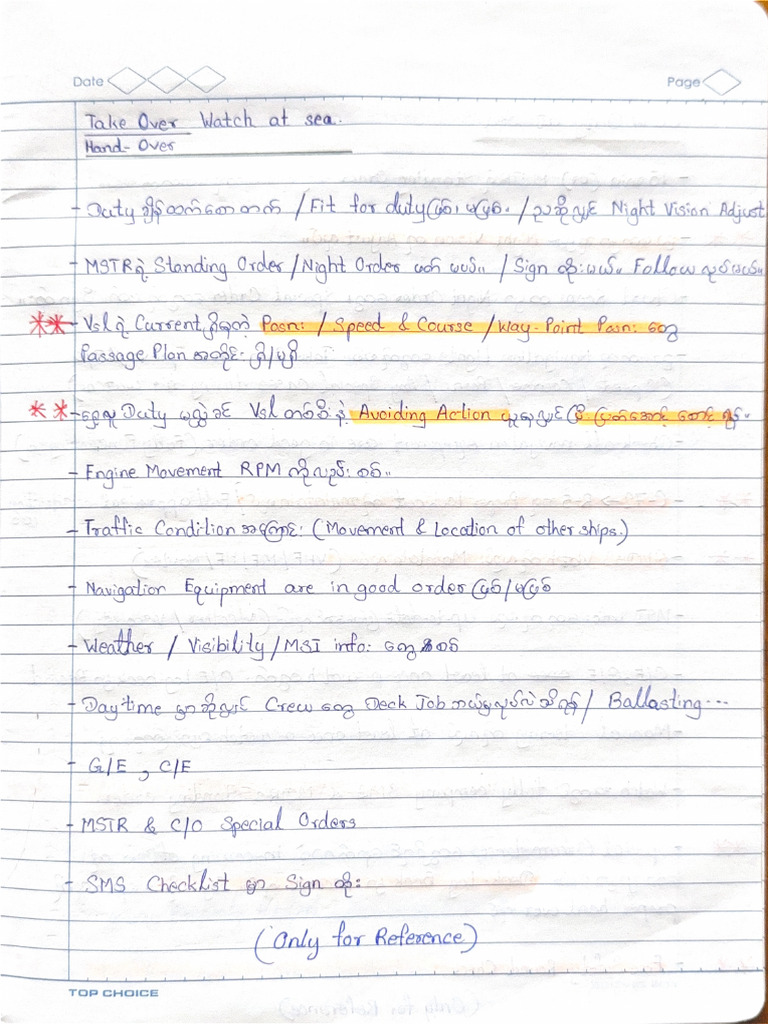 Date
Page
Take Over Watch at sea.
Hand-Over
- Duty ချိန်ထက်စောတက် / Fit for duty ဖြစ်၊ မဖြစ်။ / ညဆိုလျှင် Night Vision Adjust
- MSTR ရဲ့ Standing Order / Night Order ဖတ် မယ်။ / Sign ထိုးမယ်။ Follow လုပ်မယ်။
** - Vsl ရဲ့ Current ရှိနေတဲ့ Posn: / Speed & Course / Way-Point Posn: တွေ
Passage Plan အတိုင်း ရှိ/မရှိ
** - ရှေ့လူ Duty မလွှဲခင် Vsl တစ်စီးနဲ့ Avoiding Action ယူနေလျှင် ပြီးပြတ်အောင် စောင့်ရန်။
- Engine Movement RPM ကိုလည်း စစ်။
- Traffic Condition အကြောင်း (Movement & Location of other ships.)
- Navigation Equipment are in good order ဖြစ်/မဖြစ်
- Weather / Visibility / MSI info: တွေ စစ်
- Day time မှာဆိုလျှင် Crew တွေ Deck Job ဘယ်မှာလုပ်လဲသိရန် / Ballasting...
- G/E , C/E
- MSTR & C/O Special Orders
- SMS Checklist မှာ Sign ထိုး
(Only for Reference)
TOP CHOICE